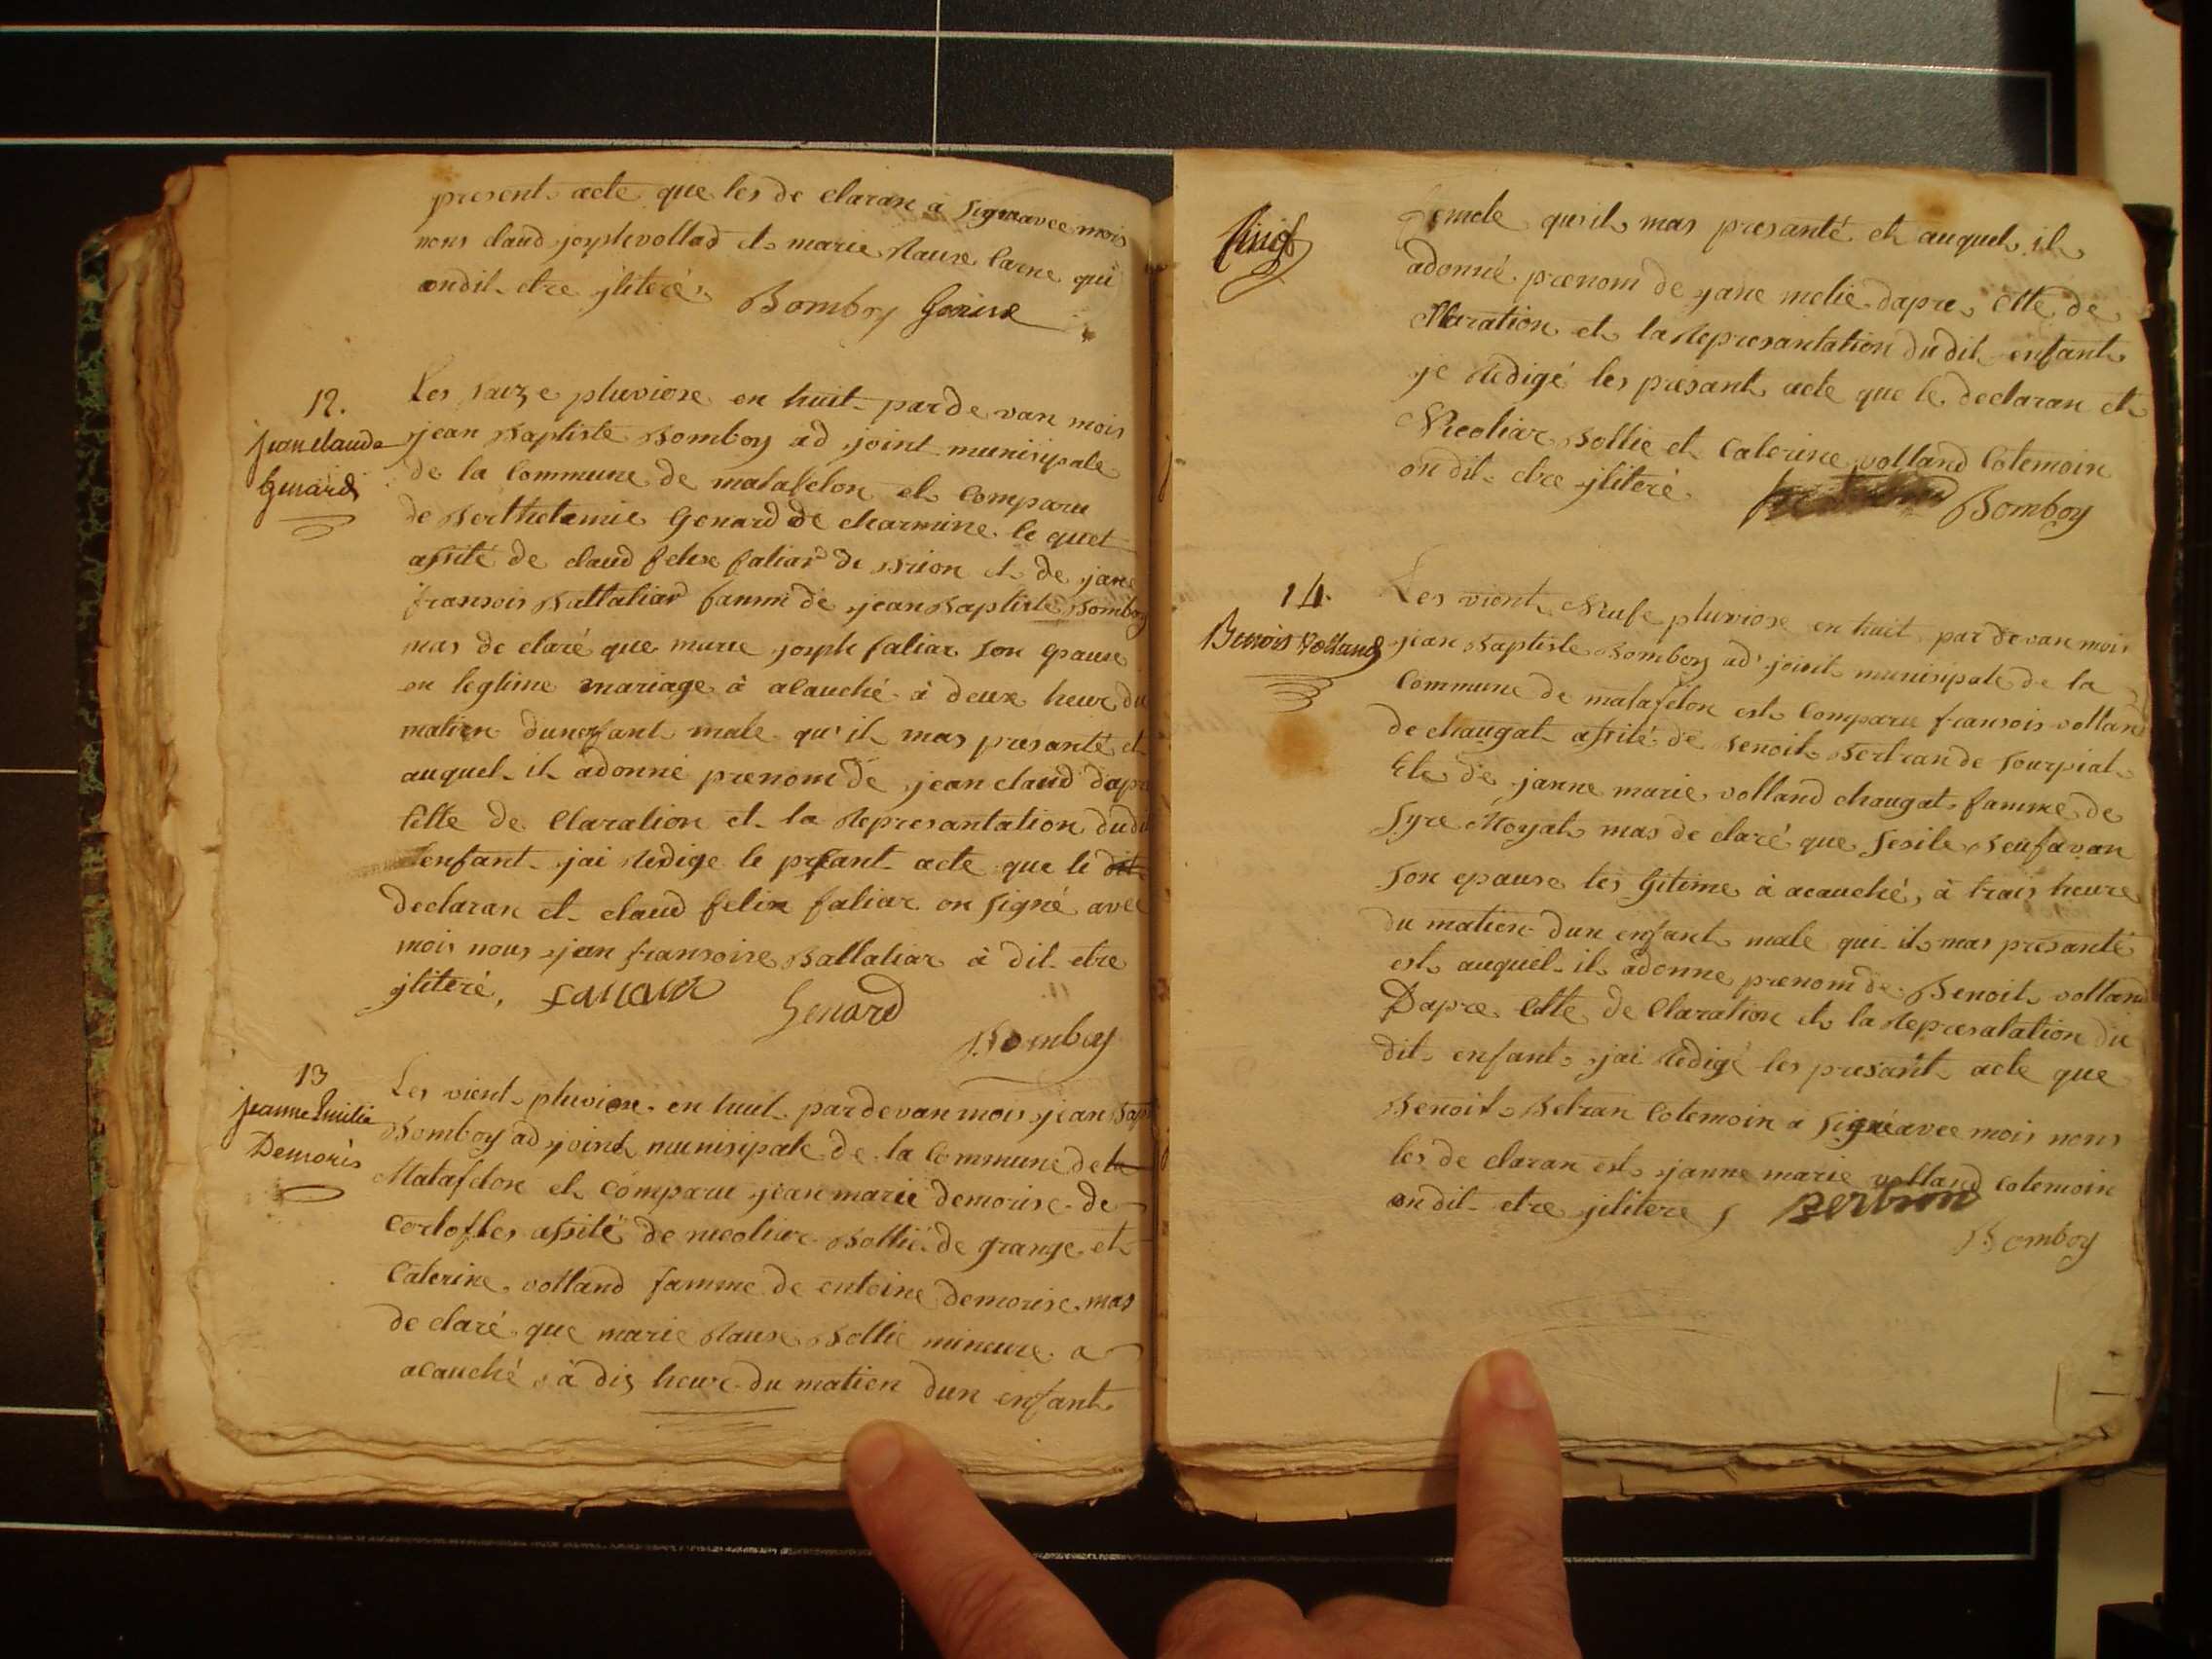 present acte que les de claran a signe avec mois
nons claud joseph vollad et marie Rause Carne qui
ondit etre jliteré
Bomboy
12.
jean claude
Genard
Les saize pluviose en huit par de van mois
jean Baptiste Bomboy ad joint munisipale
de la Commune de matafelon et Comparu
de Berthelemie Genard de charmine le quel
assité de claud felix faliar de Brion et de jane
fransois Battaliard famme de jean Baptiste Bomboy
mas de claré que marie joseph faliar son epause
en legtime mariage à acauché à deux heur du
matien dun enfant male qu'il mas presanté et
auquel il adonné prenom de jean claud dapre
sette de Claration et la Represantation du dit
enfant jai Redige le presant acte que le dit
declaran et claud felix faliar on signé avec
mois nous jan fransoise Battaliar à dit etre
jliteré,
Genard
Bomboy
13
jeanne Emilie
Demoris
Les vient pluviose en huit par devan mois jean Bapt
Bomboy ad joint munisipale de la Commune de la
Matafelon et comparu jean marie demorise de
Corlofles assité de nicoliar Bollié de grange et
Caterine volland famme de entoine demorise mas
de claré que marie Rause Bollie mineure a
acauché à dix heure du matien dun enfant
femele qu'il mas presanté et auquel il
adonné prenom de jane melie dapre cette de
Claration et la Represantation du dit enfant
je Redigé les presant acte que le declaran et
Nicoliar Bollie et Caterine volland Cotemoin
on dit etre jliteré
Bomboy
14.
Benois Volland
Les vient Neufe pluviose en huit par de van mois
jean Baptiste Bomboy ad joint munisipale de la
Commune de matafelon est Comparu fransois volland
de chaugat assité de benoit Bertran de sourpiat
Ele de janne marie volland chaugat famme de
syre Moyat mas de claré que sesile
son epause les gitime à acauché, à trais heure
du matien dun enfant male qui il mas presanté
est auquiel il adonne prenom de Benoit volland
Dapre Cette de Claration et la Represatation du
dit enfant jai Redigé les presant acte que
Benoit Betran Cotemoin a signé avec mois nons
les de claran est janne marie volland cotemoin
on dit etre jlitere
Bertran
Bomboy